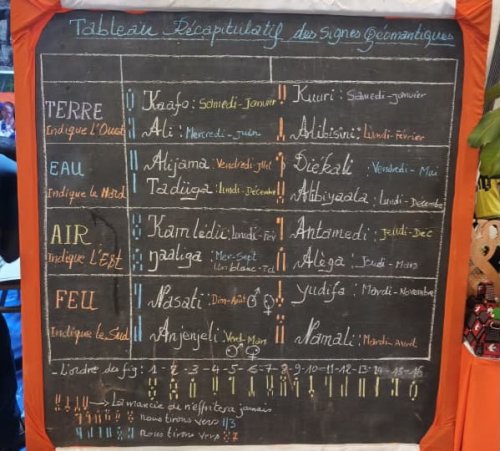 Tableau Récapitulatif des Signes Géomantiques
TERRE
Indique L'Ouest
Kaafo : Samedi-Janvier
Kuuri : Samedi-janvier
Ali : Mercredi-Juin
Alibisini : Lundi-Février
EAU
Indique le Nord
Alijama : Vendredi-Juil
Diékali : Vendredi-Mai
Taduga : lundi-Décembre
Albiyaata : Lundi-Décembre
AIR
Indique L'Est
Kamledu : Lundi-Fev
Antamedi : Jeudi-Dec
ŋaaliga : Mer-Sept
Alega : Jeudi-Mars
FEU
Indique le Sud
Nasati : Dim-Août
yudifa : Mardi-Novembre
Anjenjeli : Vend-Mars
Namali : Mardi-Avril
- L'ordre des fig : 1 - 2 - 3 - 4 - 5 - 6 - 7 - 8 - 9 - 10 - 11 - 12 - 13 - 14 - 15 - 16
La mancie ne jamais
nous tirons vers 1/3
nous tirons vers 7